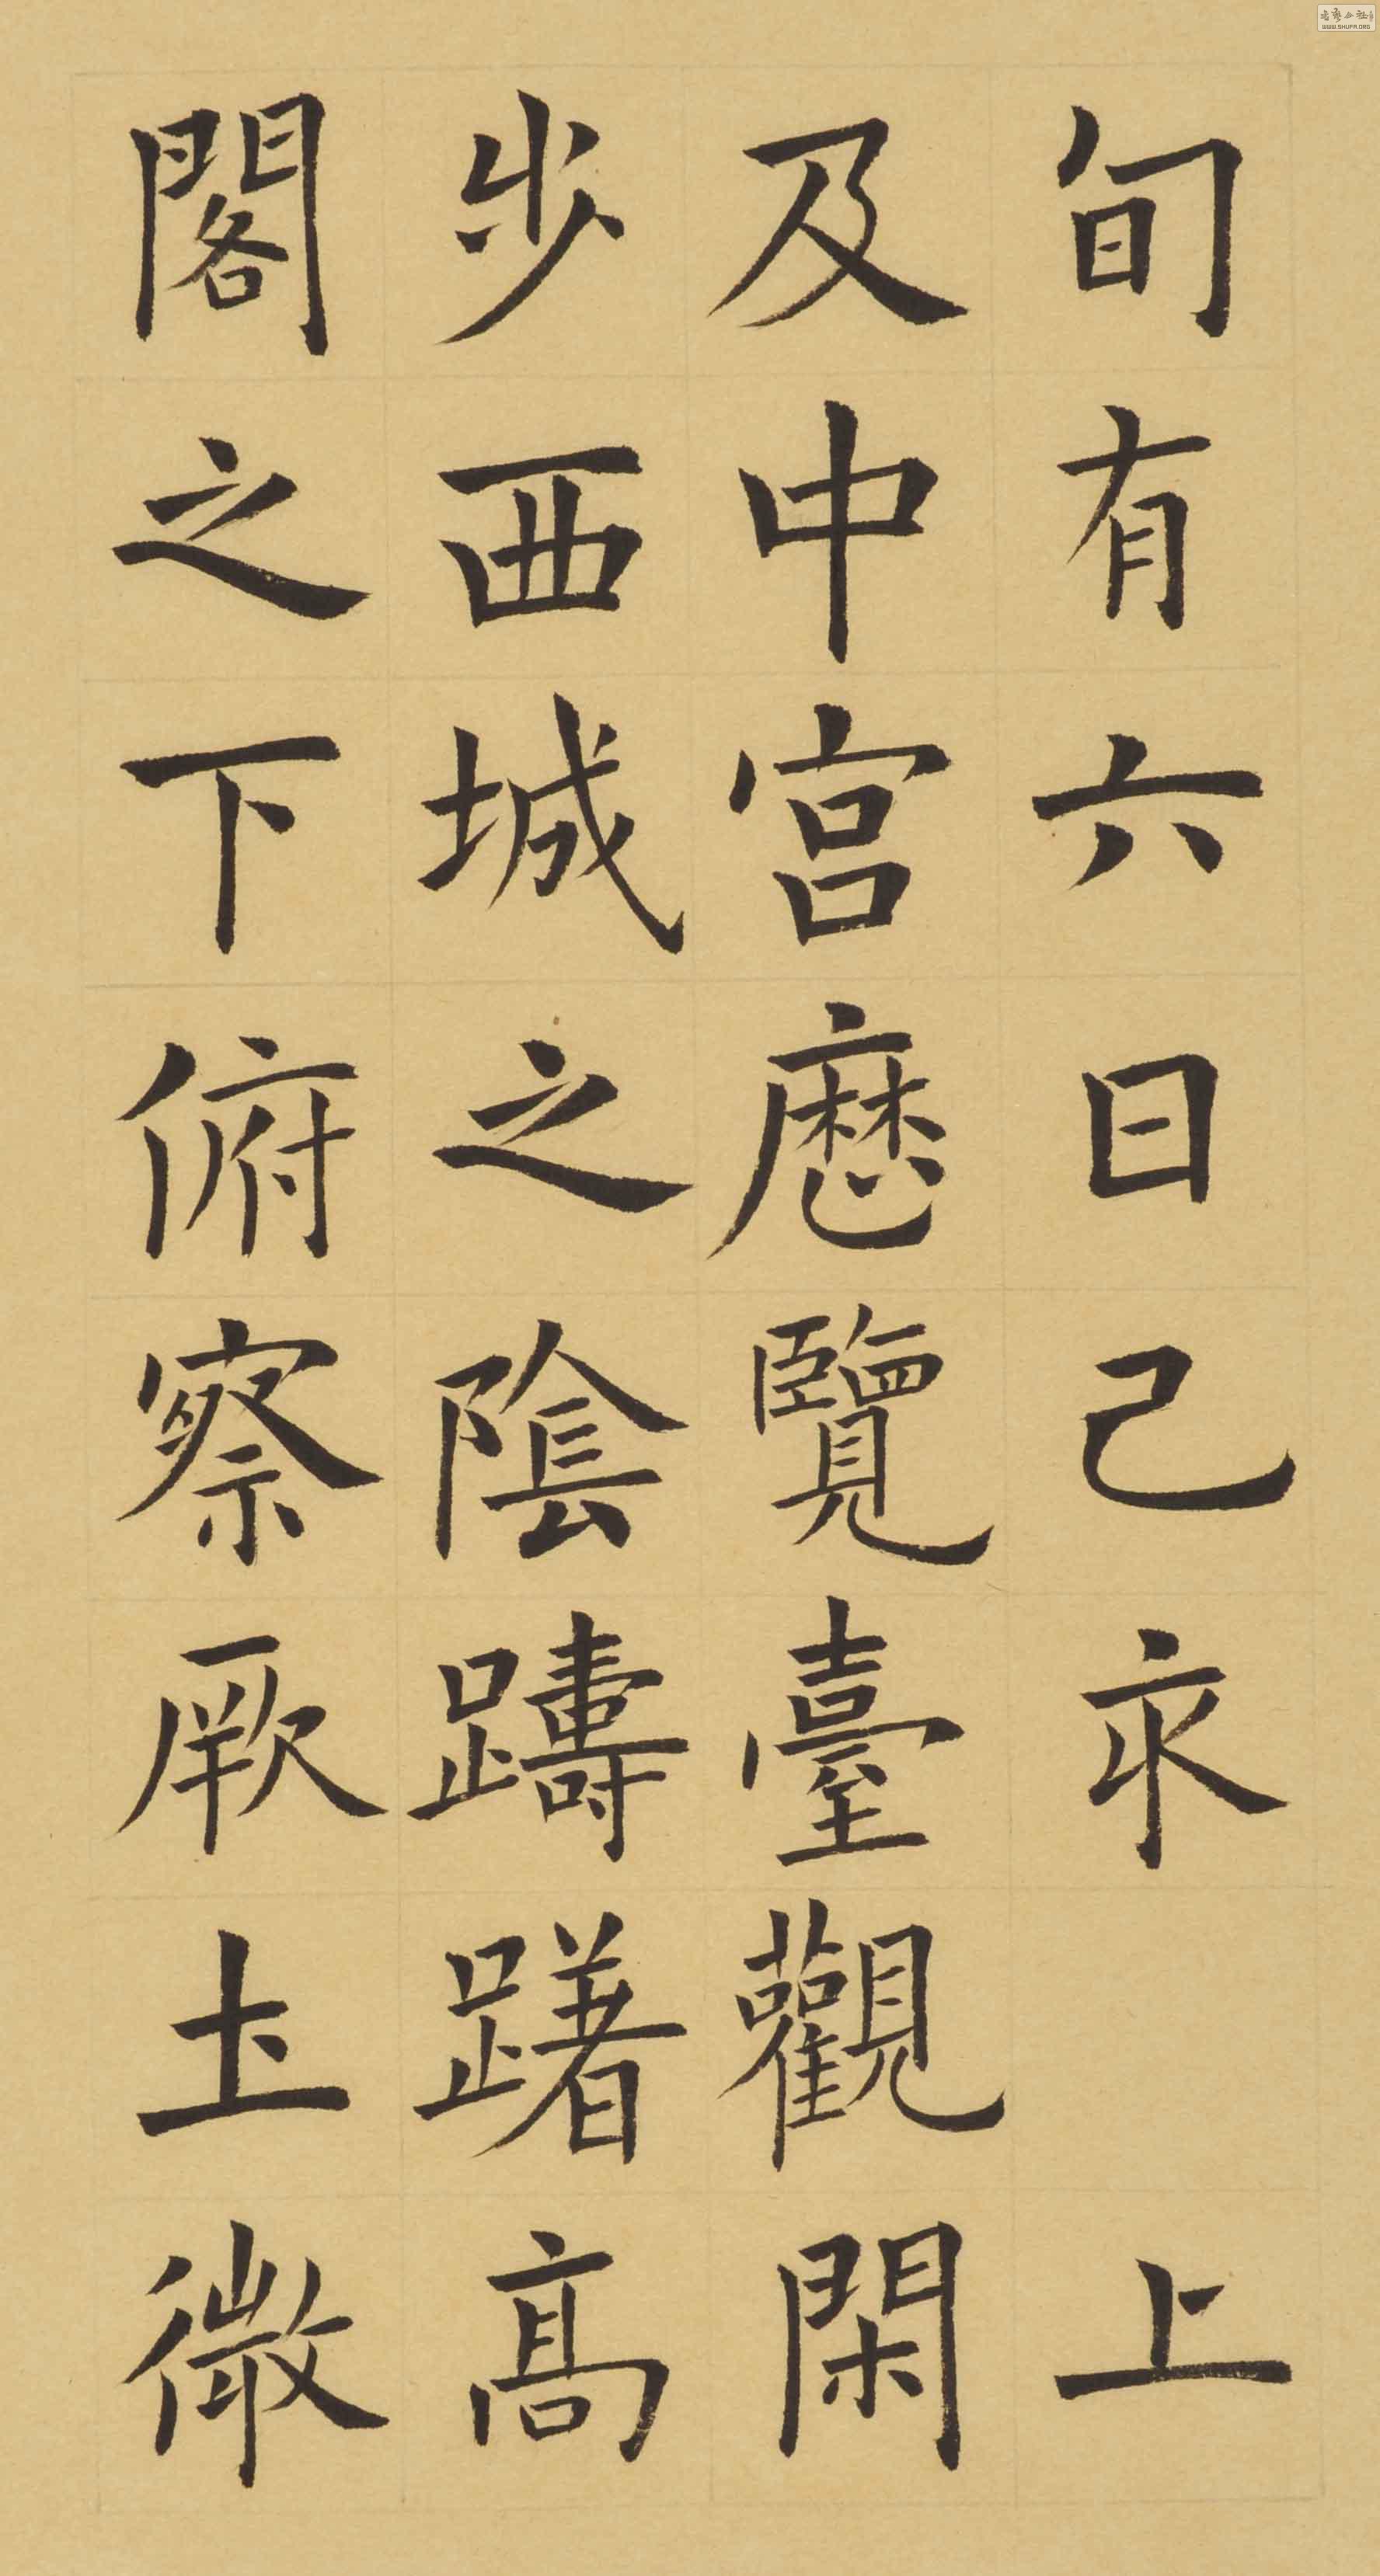 旬有六日己亥上
及中宮歴覽臺觀閑
步西城之陰躊躇高
閣之下俯察厥土微
WWW.SHUFA.ORG